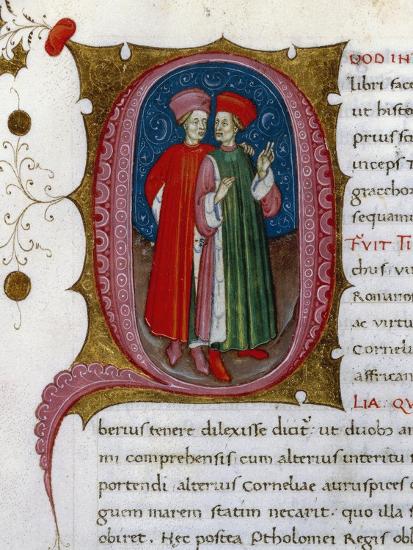 VOD INT
libri face
ut histo
prius sci
inceps T
graccho
sequam
FVIT TI
chus, vi
Romano
ac virtu
Corneliu
affrican
LIA. QV
berius tenere dilexisse dicit̃. ut duobꝰ an
mi comprehensis cum alterius interitu
portendi, alterius Corneliae auruspices c
guem marem statim necarit. quo illa s
obiret. Hec postea Ptholomei Regis obl